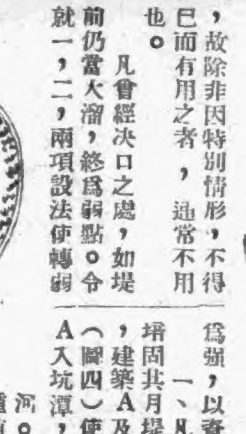 ，故除非因特別情形，不得
已而有用之者，通常不用
也。
凡曾經決口之處，如堤
前仍當大溜，終爲弱點。今
就一，二，兩項設法使轉弱
爲强，以資
一、凡
培固其月堤
，建築A及
（圖四）使
A入坑潭，
河。